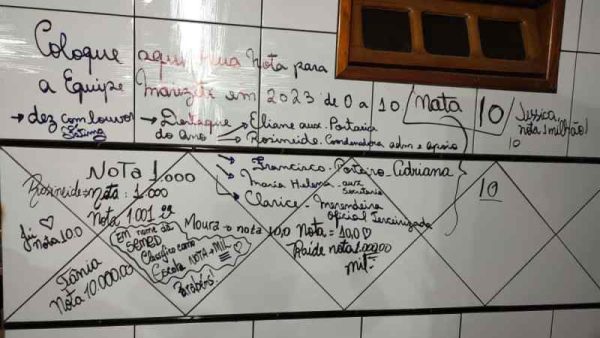 Coloque aqui sua Nota para
a Equipe Marizete em 2023 de 0 a 10
Nata
10
Jessica,
nota 1 milhão!
10
→ dez com louvor
Fátima
→ Destaque
do ano
→ Eliane aux. Portaria
→ Rosineide. Coordenadora adm e apoio
→ Francisco - Porteiro - Adriana
→ Maria Helena - aux
Secretaria
→ Clarice - Merendeira
Oficial Terceirizada
10
NoTA 1000
Rosineide = nota: 1.000
Nota 1001
Jai ♡
Nota 10,0
Tânia
Nota 10.000,00
Em nome da
SEMED
Classifico como
Escola NOTA = MIL
Parabéns!
Moura = nota 10,0
Nota = 10,0 ♡
Raide nota 1.000,00
mil